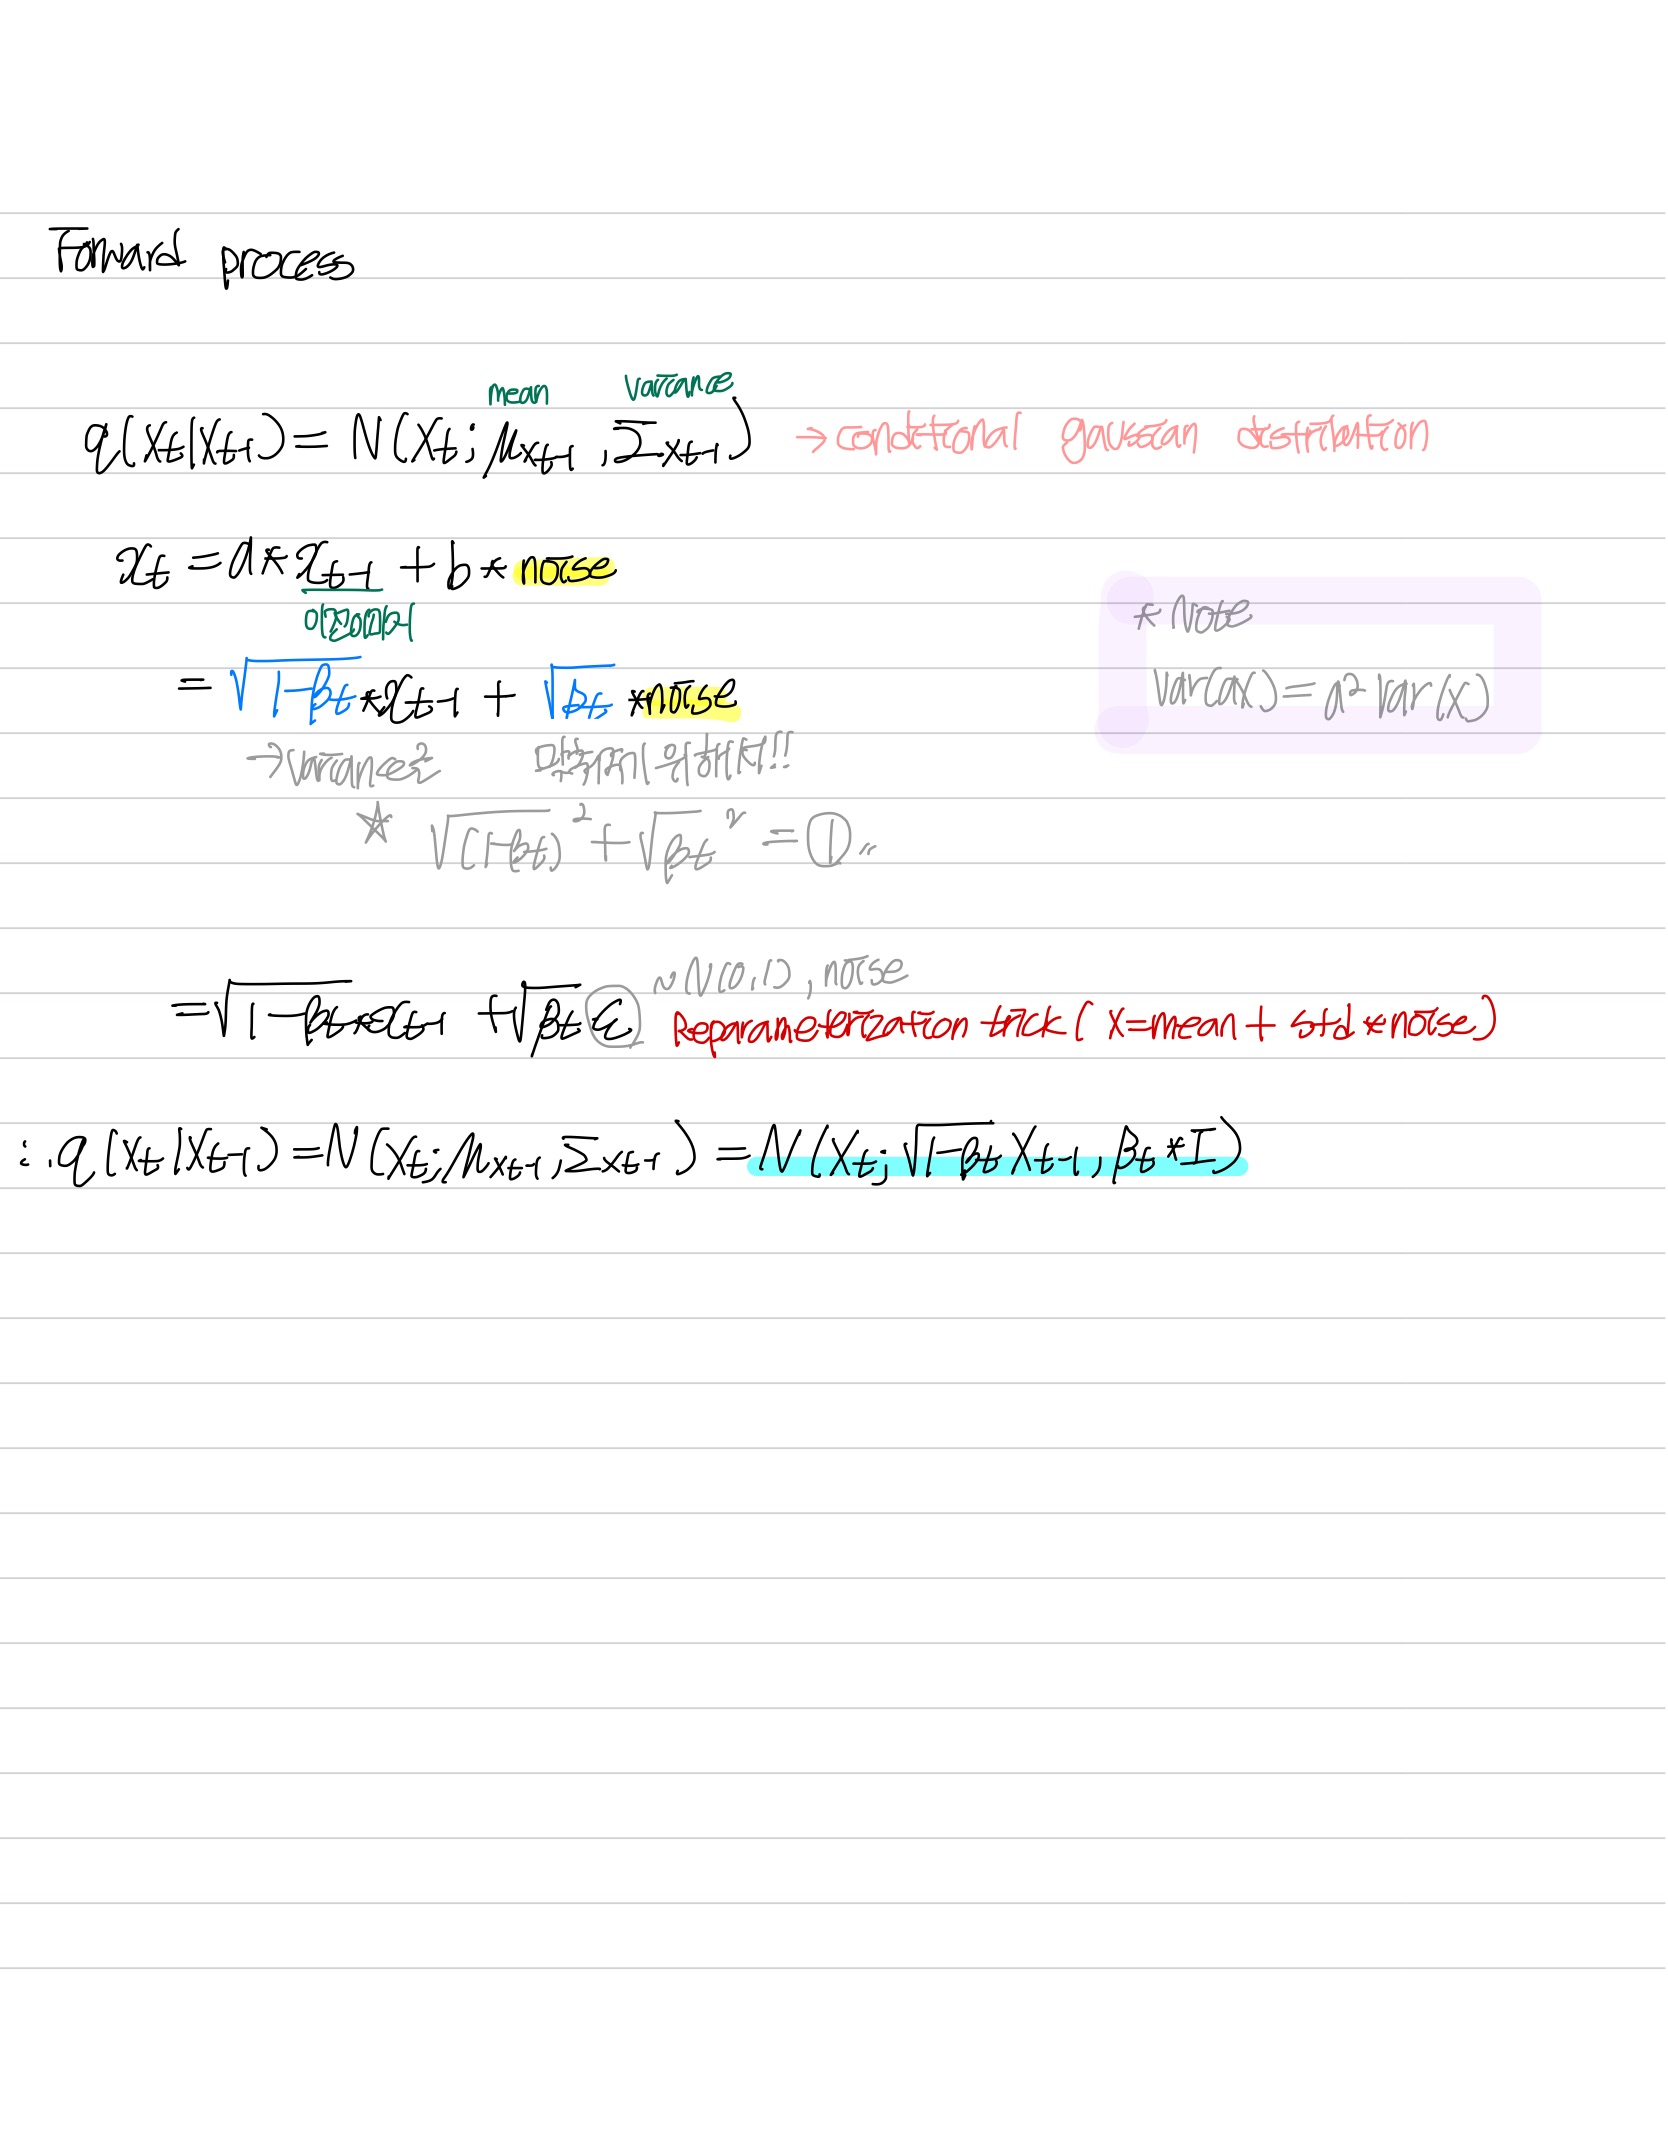 Forward process
mean variance
q(xt|xt-1) = N(xt; μxt-1, Σxt-1) → conditional gaussian distribution
xt = a * xt-1 + b * noise
이전이미지
* Note
= √1-βt * xt-1 + √βt * noise
Var(ax) = a² Var(x)
→ variance를 맞춰주기 위해서!!
☆ √(1-βt)² + √βt² = ①
~N(0,1), noise
= √1-βt * xt-1 + √βt ε Reparameterization trick ( x=mean + std * noise )
∴ q(xt|xt-1) = N(xt; μxt-1, Σxt-1) = N(xt; √1-βt xt-1, βt * I)